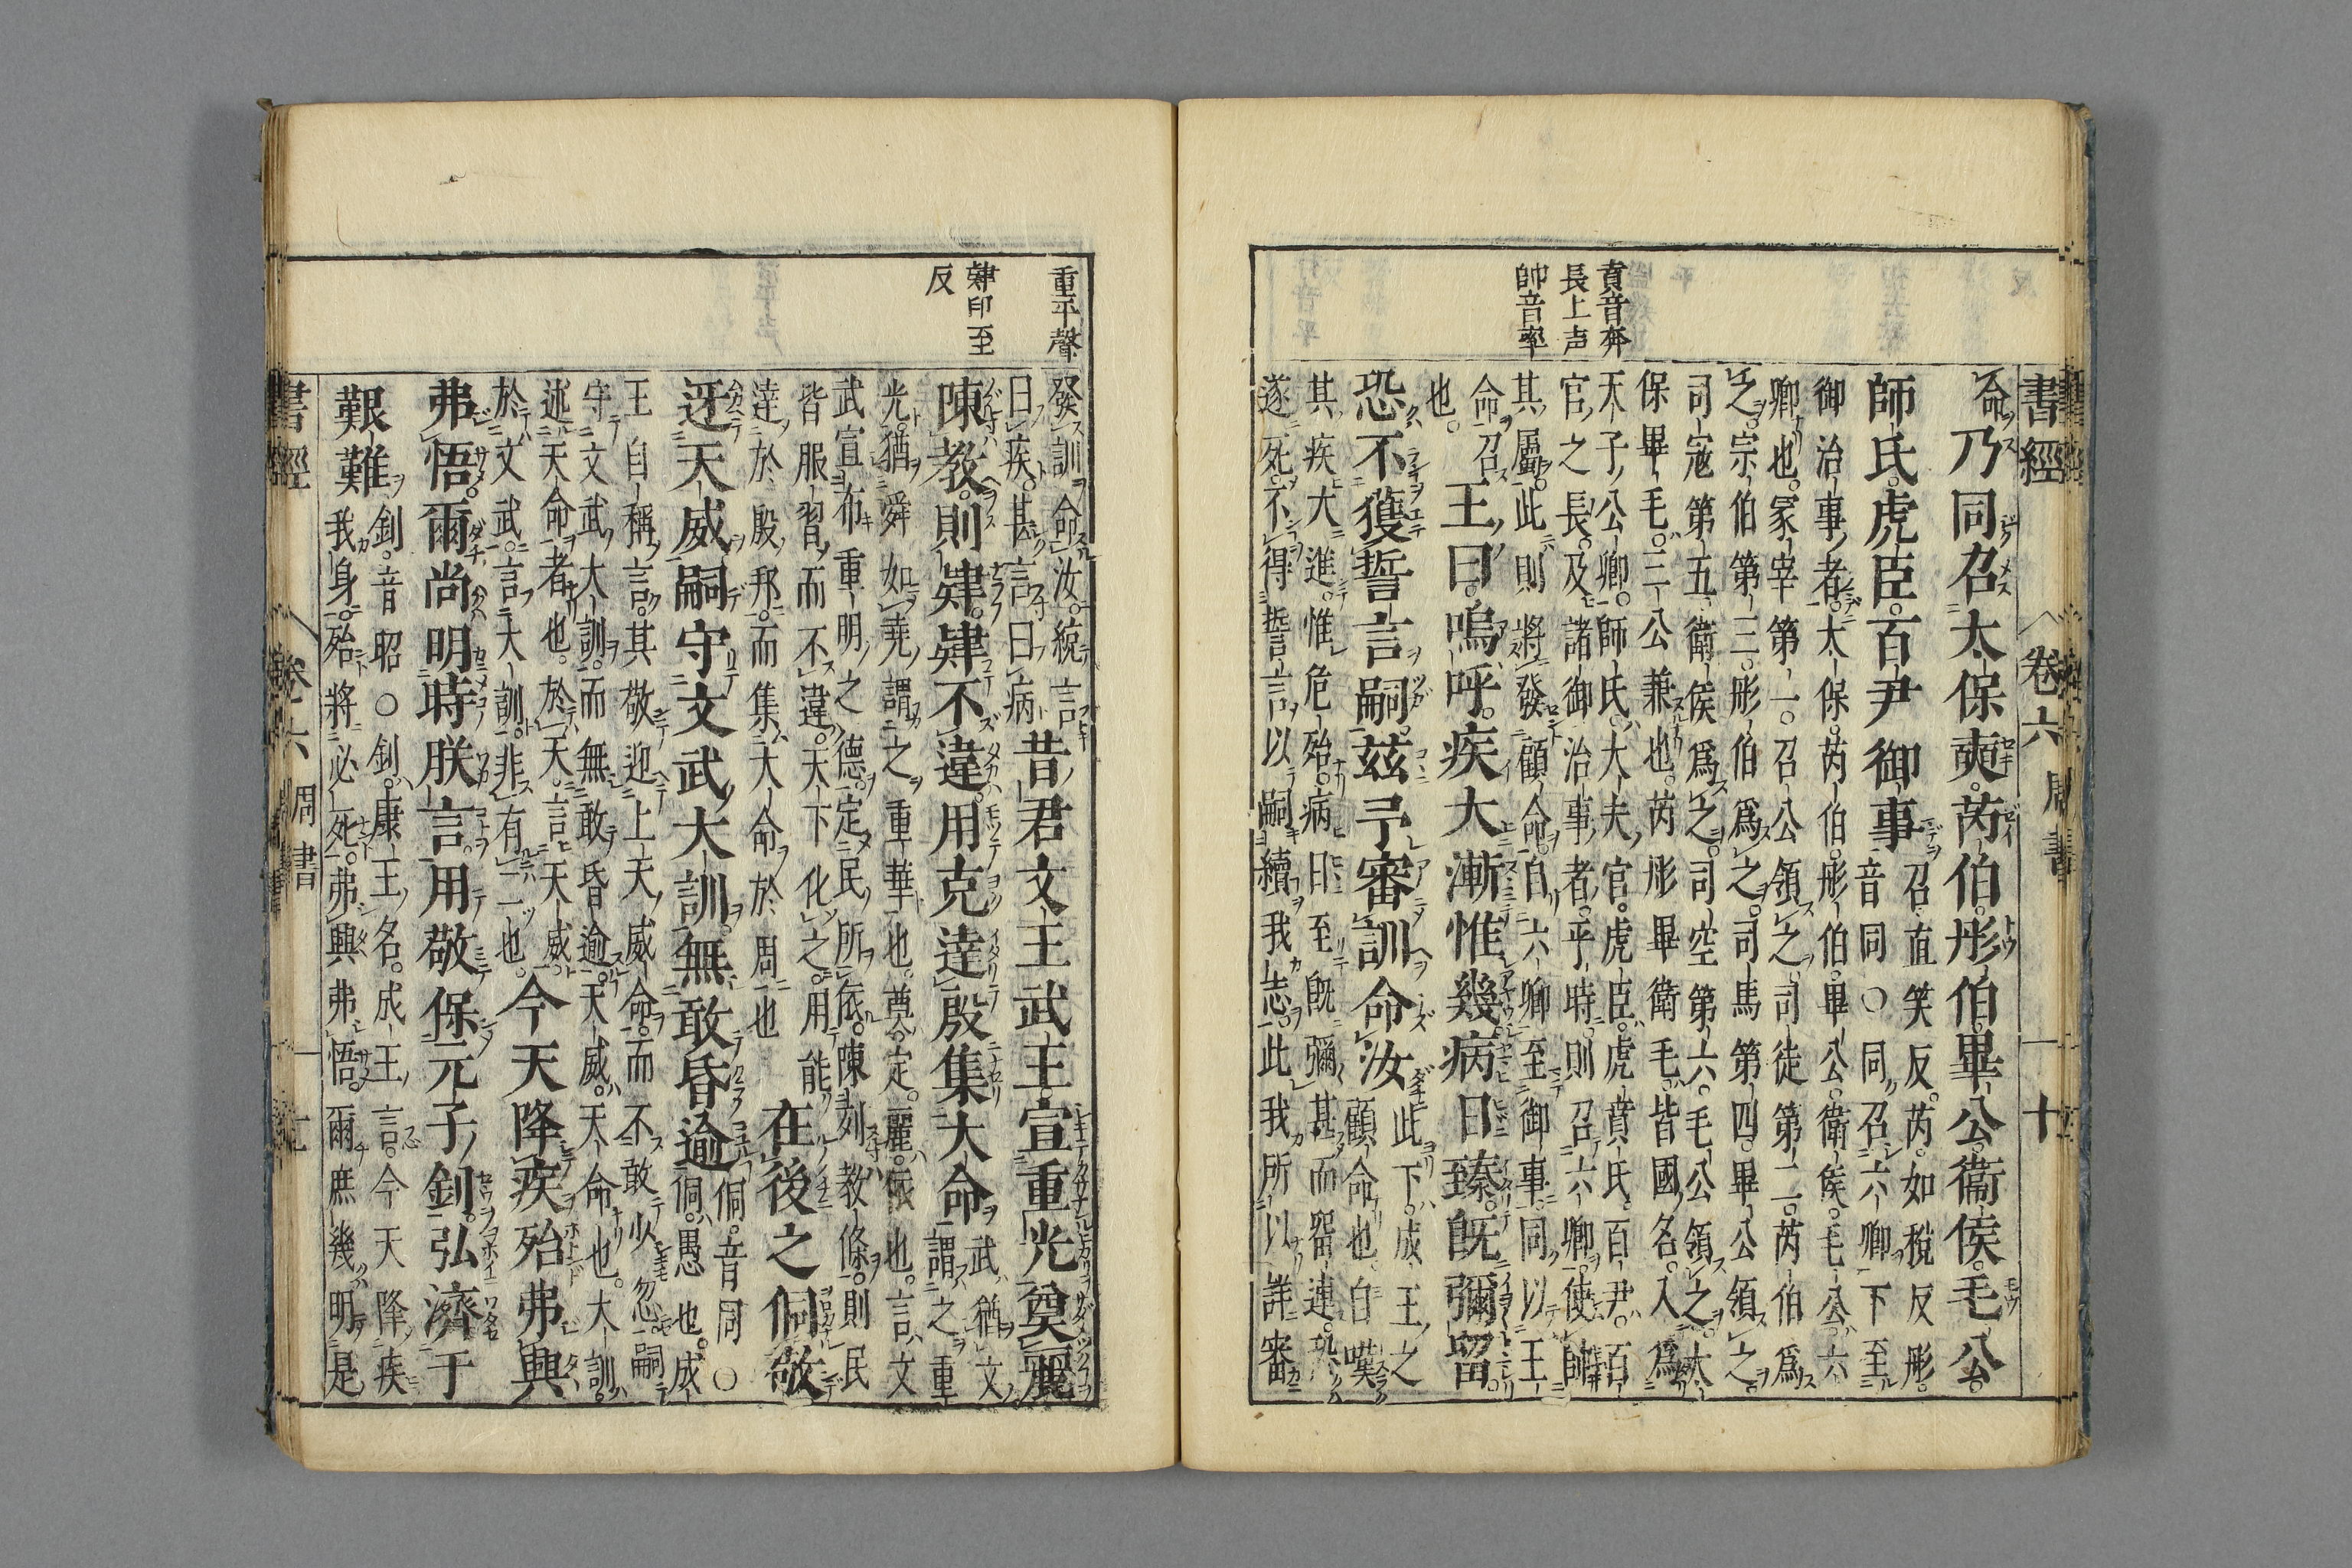 書經 卷六 周書 十
賁音奔
長上声
帥音率
命乃同召太保奭。芮伯。彤伯。畢公。衞侯。毛公。
師氏。虎臣。百尹御事
召直笑反。芮。如稅反。彤。
音同○同召六卿下至
御治事者。太保。芮伯。彤伯。畢公。衛侯。毛公。六
卿也。冢宰第一。召公領之。司徒第二。芮伯爲
之。宗伯第三。彤伯爲之。司馬第四。畢公領之。
司寇第五。衛侯爲之。司空第六。毛公領之。太
保畢毛。三公兼也。芮彤畢衛毛。皆國名。入爲
天子公卿。師氏。大夫官。虎臣。虎賁氏。百尹。百
官之長。及諸御治事者。平時。則召六卿。使帥
其屬。此則將發顧命。自六卿至御事。同以王
命召
也。
王曰。嗚呼。疾大漸惟幾。病日臻。旣彌留。
恐不獲誓言嗣。茲予審訓命汝
此下。成王之
顧命也。自嘆
其疾大進。惟危殆。病日至。旣彌甚而留連。恐
遂死。不得誓言以嗣續我志。此我所以詳審
重平聲
肄印至
反
發訓命汝。統言
曰疾。甚言曰病
昔君文王武王。宣重光。奠麗
陳教。則肄。肄不違。用克達殷集大命
武猶文。
謂之重
光。猶舜如堯。謂之重華也。奠。定。麗。依也。言。文
武宣布重明之德。定民所依。陳列教條。則民
皆服習而不違。天下化之。用能
達於殷邦。而集大命於周也
在後之侗。敬
迓天威。嗣守文武大訓。無敢昏逾
侗。音同○
侗。愚也。成
王自稱言。其敬迎上天威命。而不敢少忽。嗣
守文武大訓。而無敢昏逾。天威。天命也。大訓。
述天命者也。於天。言天威。
於文武。言大訓。非有二也。
今天降疾殆弗興
弗悟。爾尚明時朕言。用敬保元子釗。弘濟于
艱難
釗。音昭○釗。康王名。成王言。今天降疾
我身。殆將必死。弗興弗悟。爾庶幾明是
書經 卷六 周書